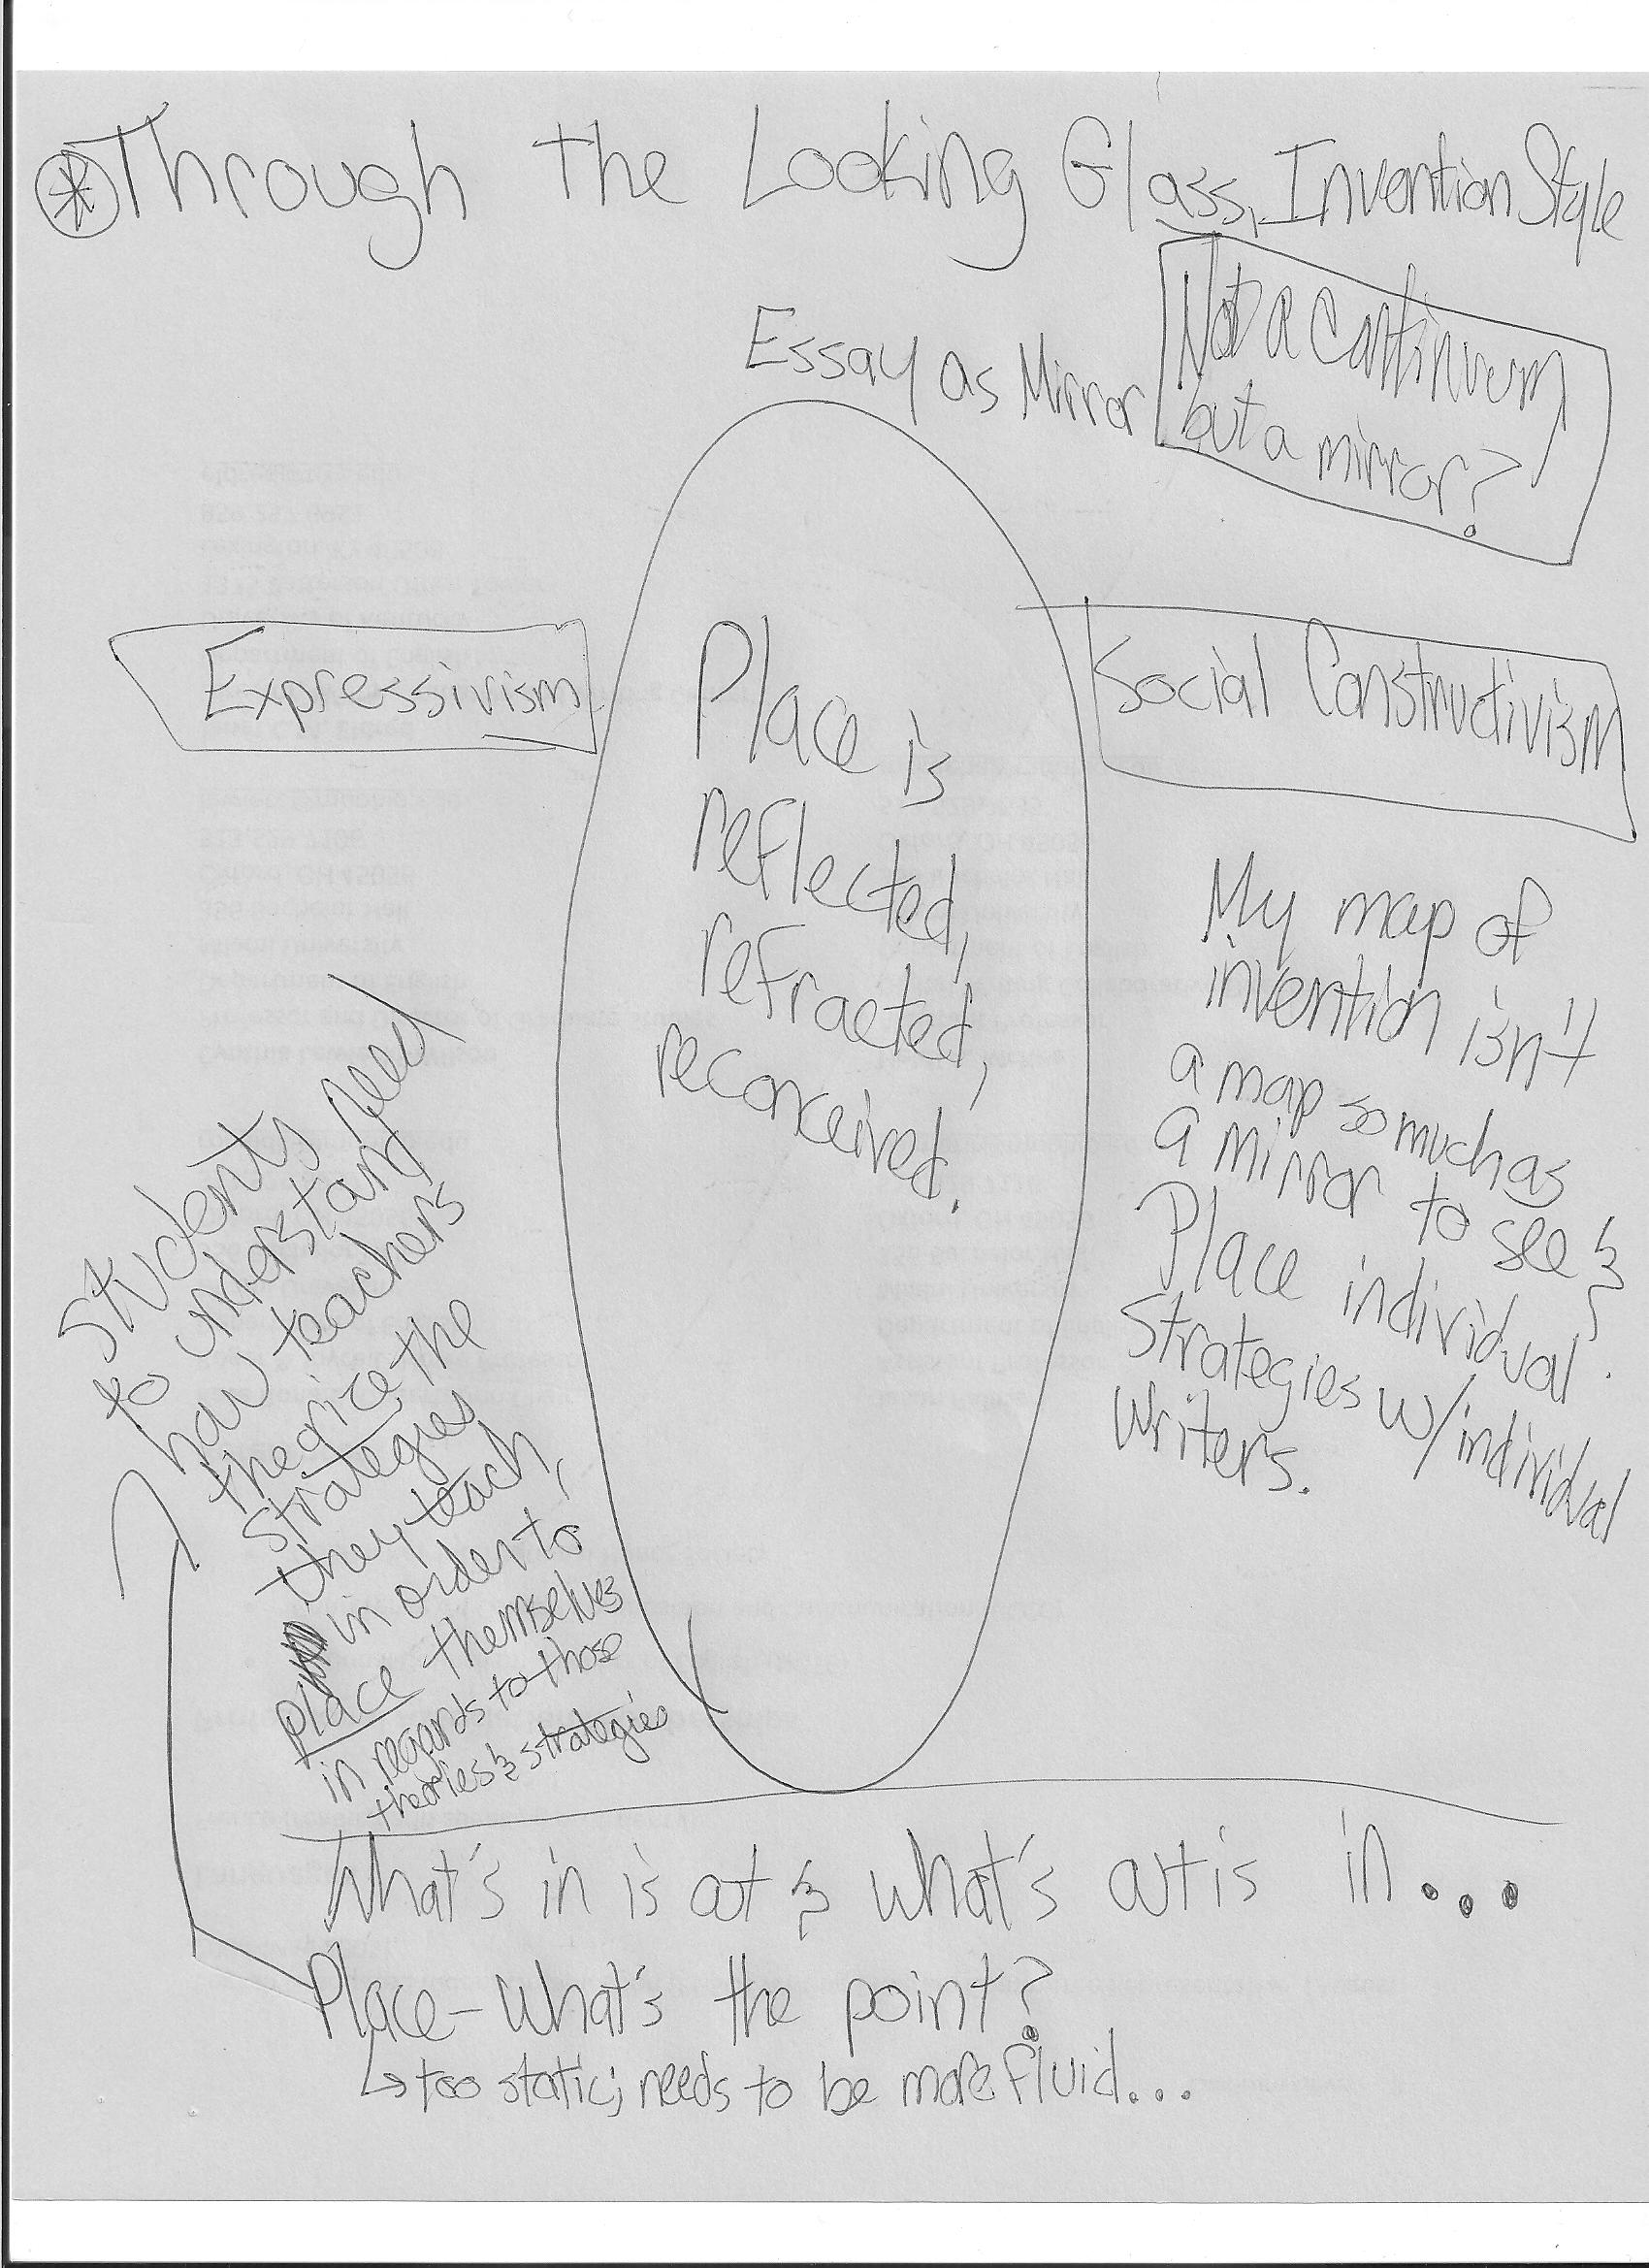 Through the Looking Glass, Invention Style
Essay as Mirror
Not a continuum
but a mirror?
Expressivism
Place is
reflected,
refracted,
reconceived.
Social Constructivism
My map of
invention isn't
a map so much as
a mirror to see &
Place individual
Strategies w/individual
Writers.
Students need
to understand
how teachers
theorize the
strategies
they teach,
in order to
place themselves
in regards to those
theories & strategies
What's in is out & what's out is in...
Place - What's the point?
↳ too static; needs to be more fluid...